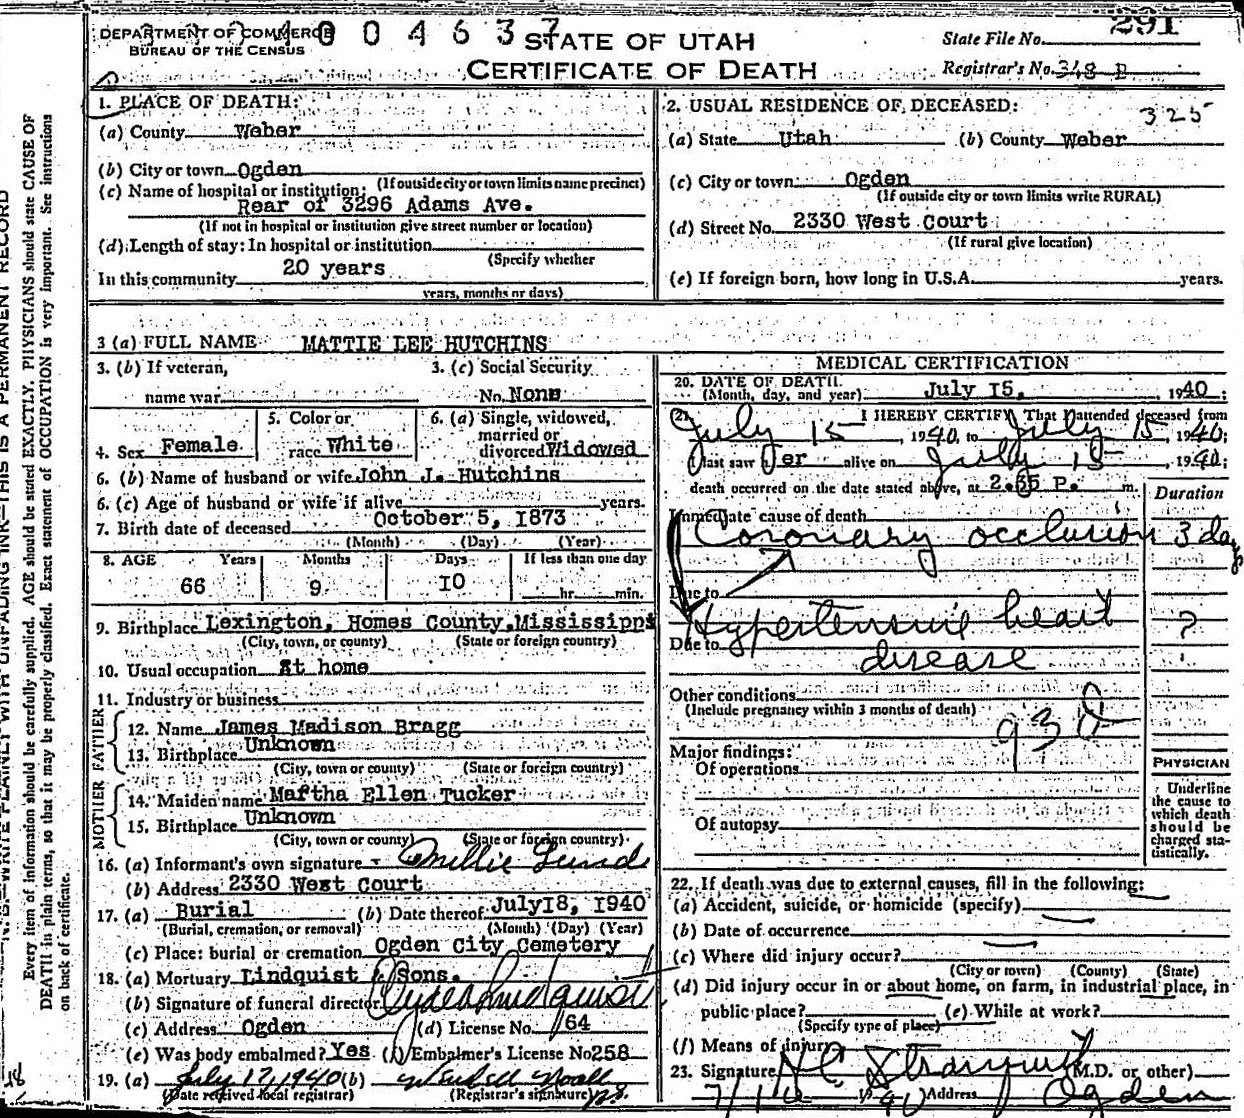 DEPARTMENT OF COMMERCE
BUREAU OF THE CENSUS
0 0 4 6 3 7
STATE OF UTAH
CERTIFICATE OF DEATH
State File No. 291
Registrar's No. 348 B
1. PLACE OF DEATH:
(a) County Weber
(b) City or town Ogden
(If outside city or town limits name precinct)
(c) Name of hospital or institution:
Rear of 3296 Adams Ave.
(If not in hospital or institution give street number or location)
(d) Length of stay: In hospital or institution
(Specify whether
In this community 20 years
years, months or days)
2. USUAL RESIDENCE OF DECEASED:
325
(a) State Utah (b) County Weber
(c) City or town Ogden
(If outside city or town limits write RURAL)
(d) Street No. 2330 West Court
(If rural give location)
(e) If foreign born, how long in U.S.A. years.
3 (a) FULL NAME MATTIE LEE HUTCHINS
3. (b) If veteran,
name war
3. (c) Social Security
No. None
4. Sex Female
5. Color or
race White
6. (a) Single, widowed,
married or
divorced Widowed
6. (b) Name of husband or wife John J. Hutchins
6. (c) Age of husband or wife if alive years.
7. Birth date of deceased October 5, 1873
(Month) (Day) (Year)
8. AGE Years Months Days If less than one day
66 9 10 hr. min.
9. Birthplace Lexington, Homes County, Mississippi
(City, town, or county) (State or foreign country)
10. Usual occupation At home
11. Industry or business
FATHER
12. Name James Madison Bragg
13. Birthplace Unknown
(City, town or county) (State or foreign country)
MOTHER
14. Maiden name Martha Ellen Tucker
15. Birthplace Unknown
(City, town or county) (State or foreign country)
16. (a) Informant's own signature Millie
(b) Address 2330 West Court
17. (a) Burial (b) Date thereof July 18, 1940
(Burial, cremation, or removal) (Month) (Day) (Year)
(c) Place: burial or cremation Ogden City Cemetery
18. (a) Mortuary Lindquist & Sons.
(b) Signature of funeral director Clyde Lindquist
(c) Address Ogden (d) License No. 164
(e) Was body embalmed? Yes (f) Embalmer's License No 258
19. (a) July 17, 1940 (b)
(Date received local registrar) (Registrar's signature)
MEDICAL CERTIFICATION
20. DATE OF DEATH
(Month, day, and year) July 15, 1940;
21. I HEREBY CERTIFY That I attended deceased from
July 15, 1940, to July 15, 1940;
I last saw her alive on July 15, 1940;
death occurred on the date stated above, at 2.35 P. m.
Duration
Immediate cause of death
Coronary occlusion 3 days
Due to
Hypertensive heart ?
Due to
disease
Other conditions
(Include pregnancy within 3 months of death)
93
Major findings:
Of operations
Of autopsy
PHYSICIAN
Underline
the cause to
which death
should be
charged sta-
tistically.
22. If death was due to external causes, fill in the following:
(a) Accident, suicide, or homicide (specify)
(b) Date of occurrence
(c) Where did injury occur?
(City or town) (County) (State)
(d) Did injury occur in or about home, on farm, in industrial place, in
public place? (e) While at work?
(Specify type of place)
(f) Means of injury
23. Signature (M.D. or other)
7/16 1940 Address Ogden
N. B.—WRITE PLAINLY WITH UNFADING INK—THIS IS A PERMANENT RECORD
Every item of information should be carefully supplied. AGE should be stated EXACTLY. PHYSICIANS should state CAUSE OF
DEATH in plain terms, so that it may be properly classified. Exact statement of OCCUPATION is very important. See instructions
on back of certificate.